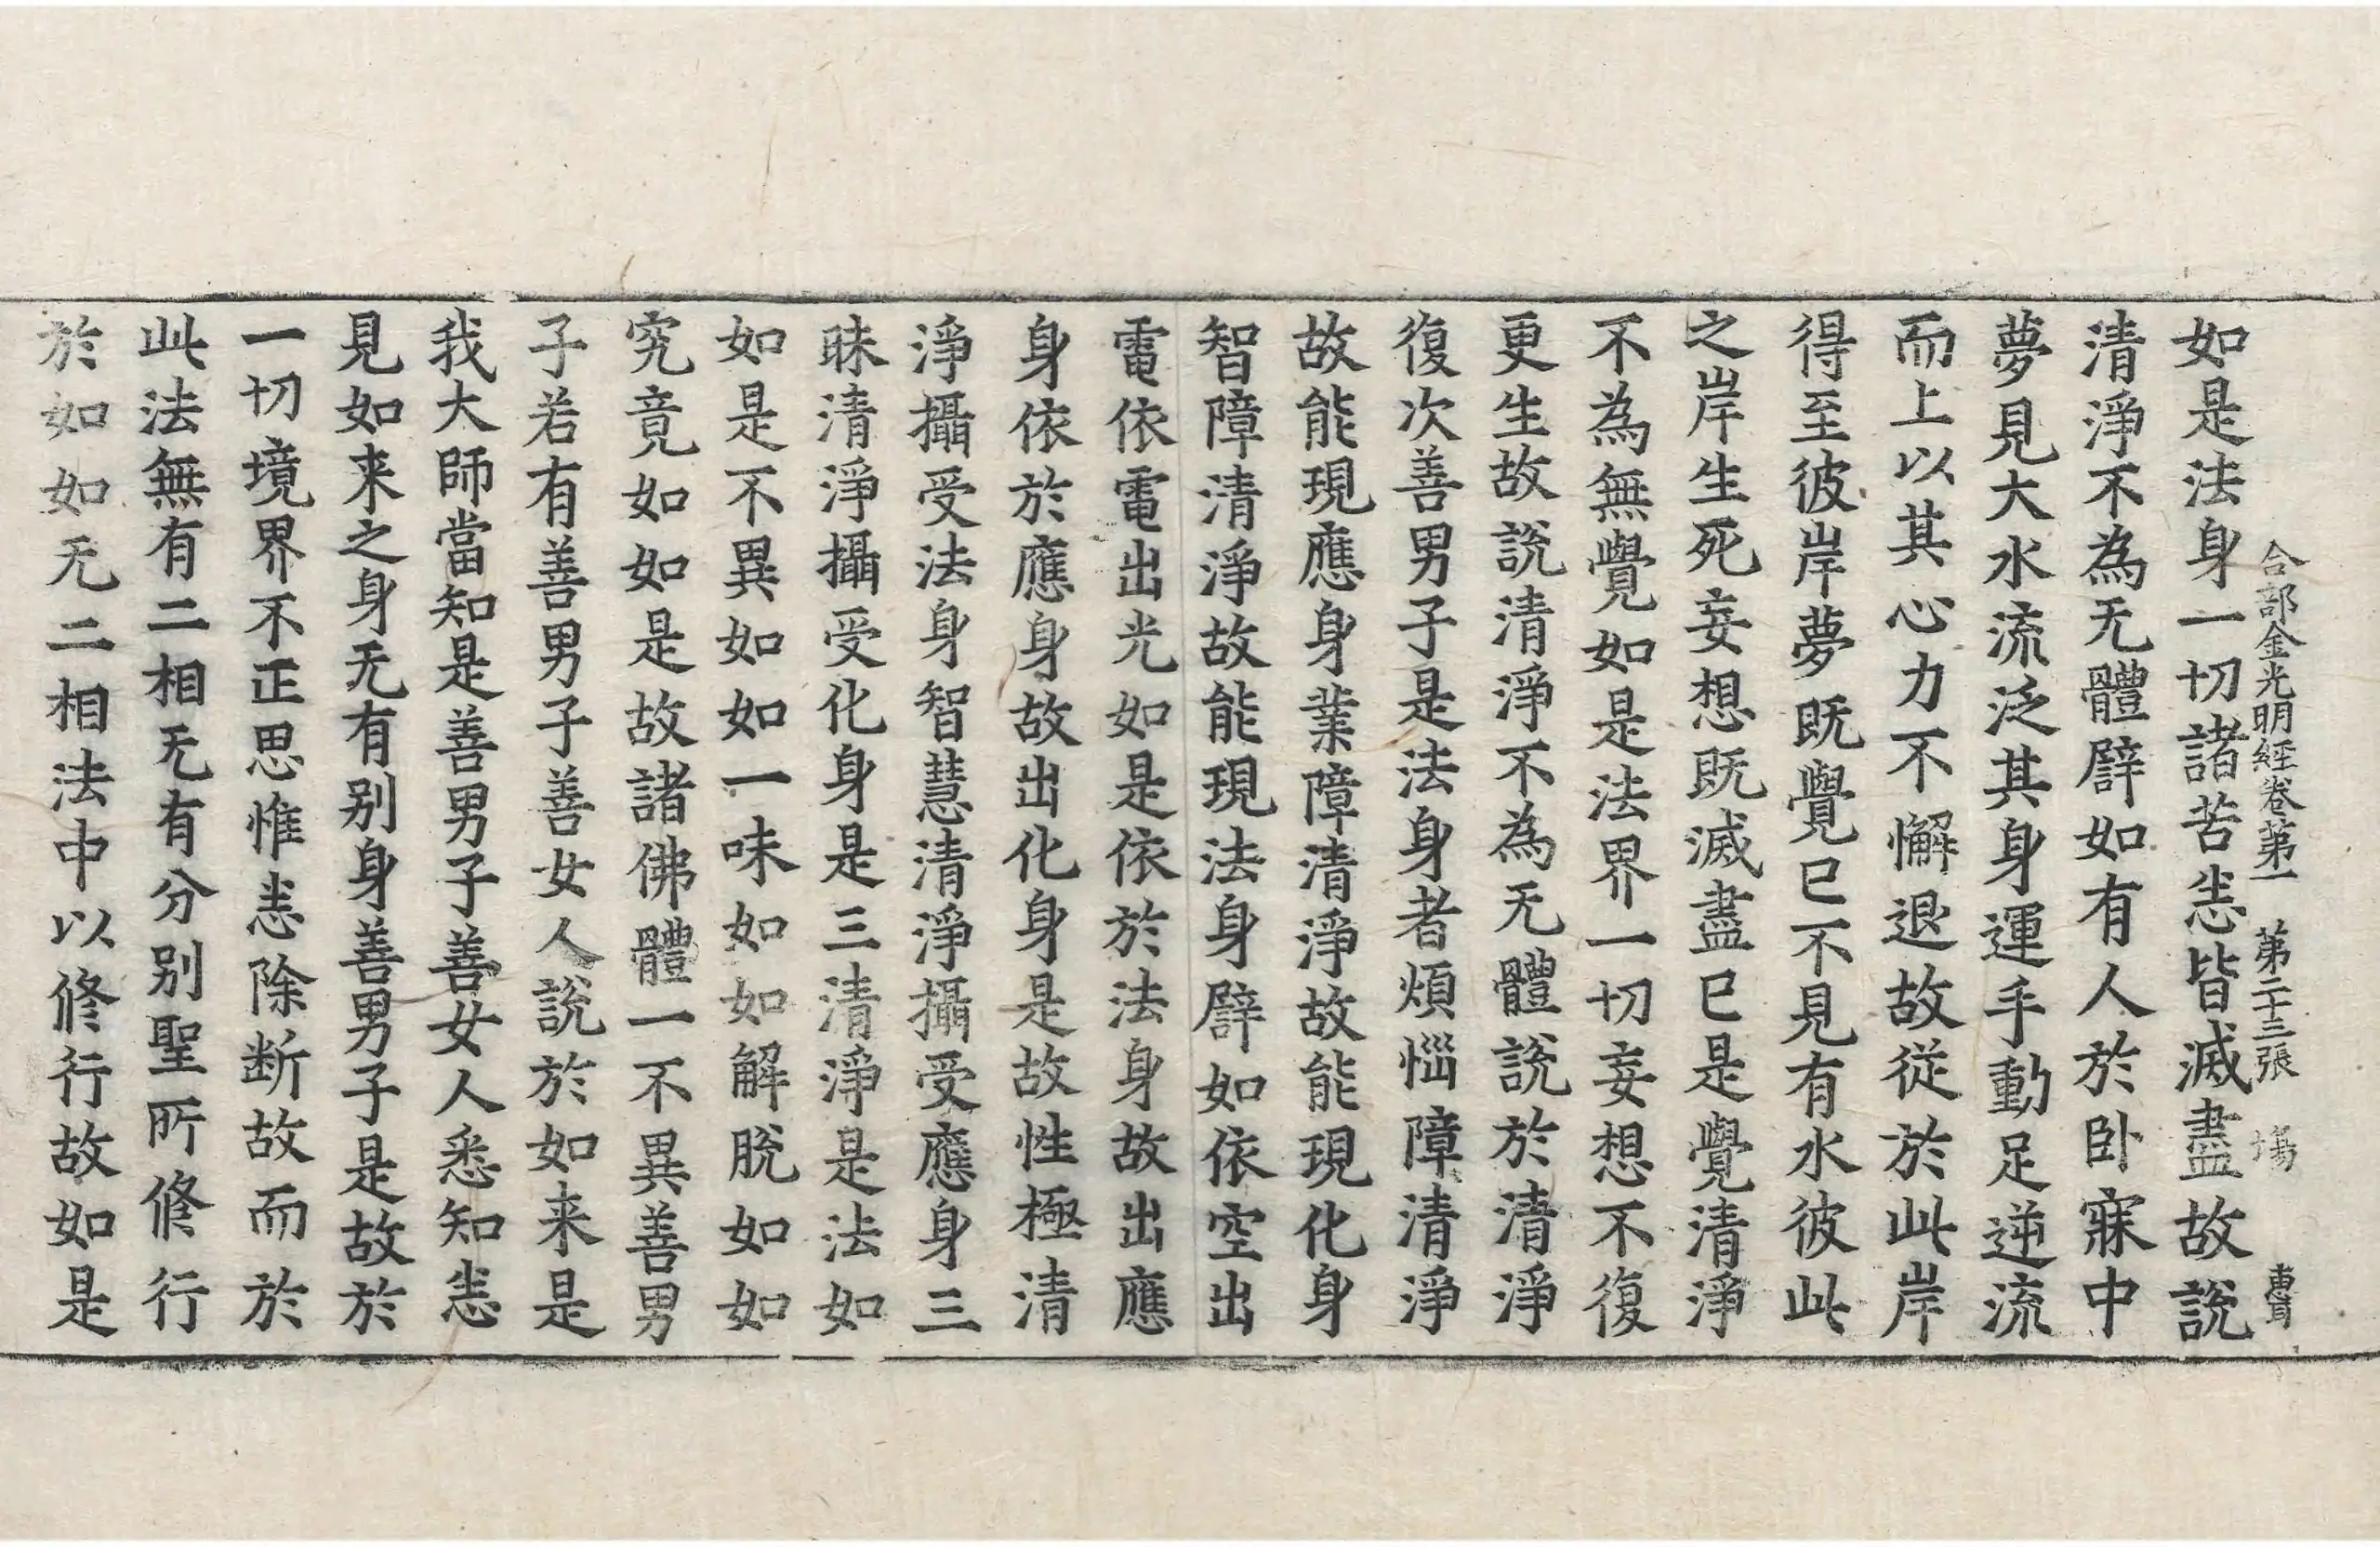 合部金光明經卷第一 第二十三張 塲 惠耳
如是法身一切諸苦恚皆滅盡故說
清淨不為无體譬如有人於卧寐中
夢見大水流泛其身運手動足逆流
而上以其心力不懈退故從於此岸
得至彼岸夢既覺已不見有水彼此
之岸生死妄想既滅盡已是覺清淨
不為無覺如是法界一切妄想不復
更生故說清淨不為无體說於清淨
復次善男子是法身者煩惱障清淨
故能現應身業障清淨故能現化身
智障清淨故能現法身譬如依空出
電依電出光如是依於法身故出應
身依於應身故出化身是故性極清
淨攝受法身智慧清淨攝受應身三
昧清淨攝受化身是三清淨是法如
如是不異如如一味如如解脫如如
究竟如如是故諸佛體一不異善男
子若有善男子善女人說於如来是
我大師當知是善男子善女人悉知恚
見如来之身无有别身善男子是故於
一切境界不正思惟恚除断故而於
此法無有二相无有分别聖所修行
於如如无二相法中以修行故如是